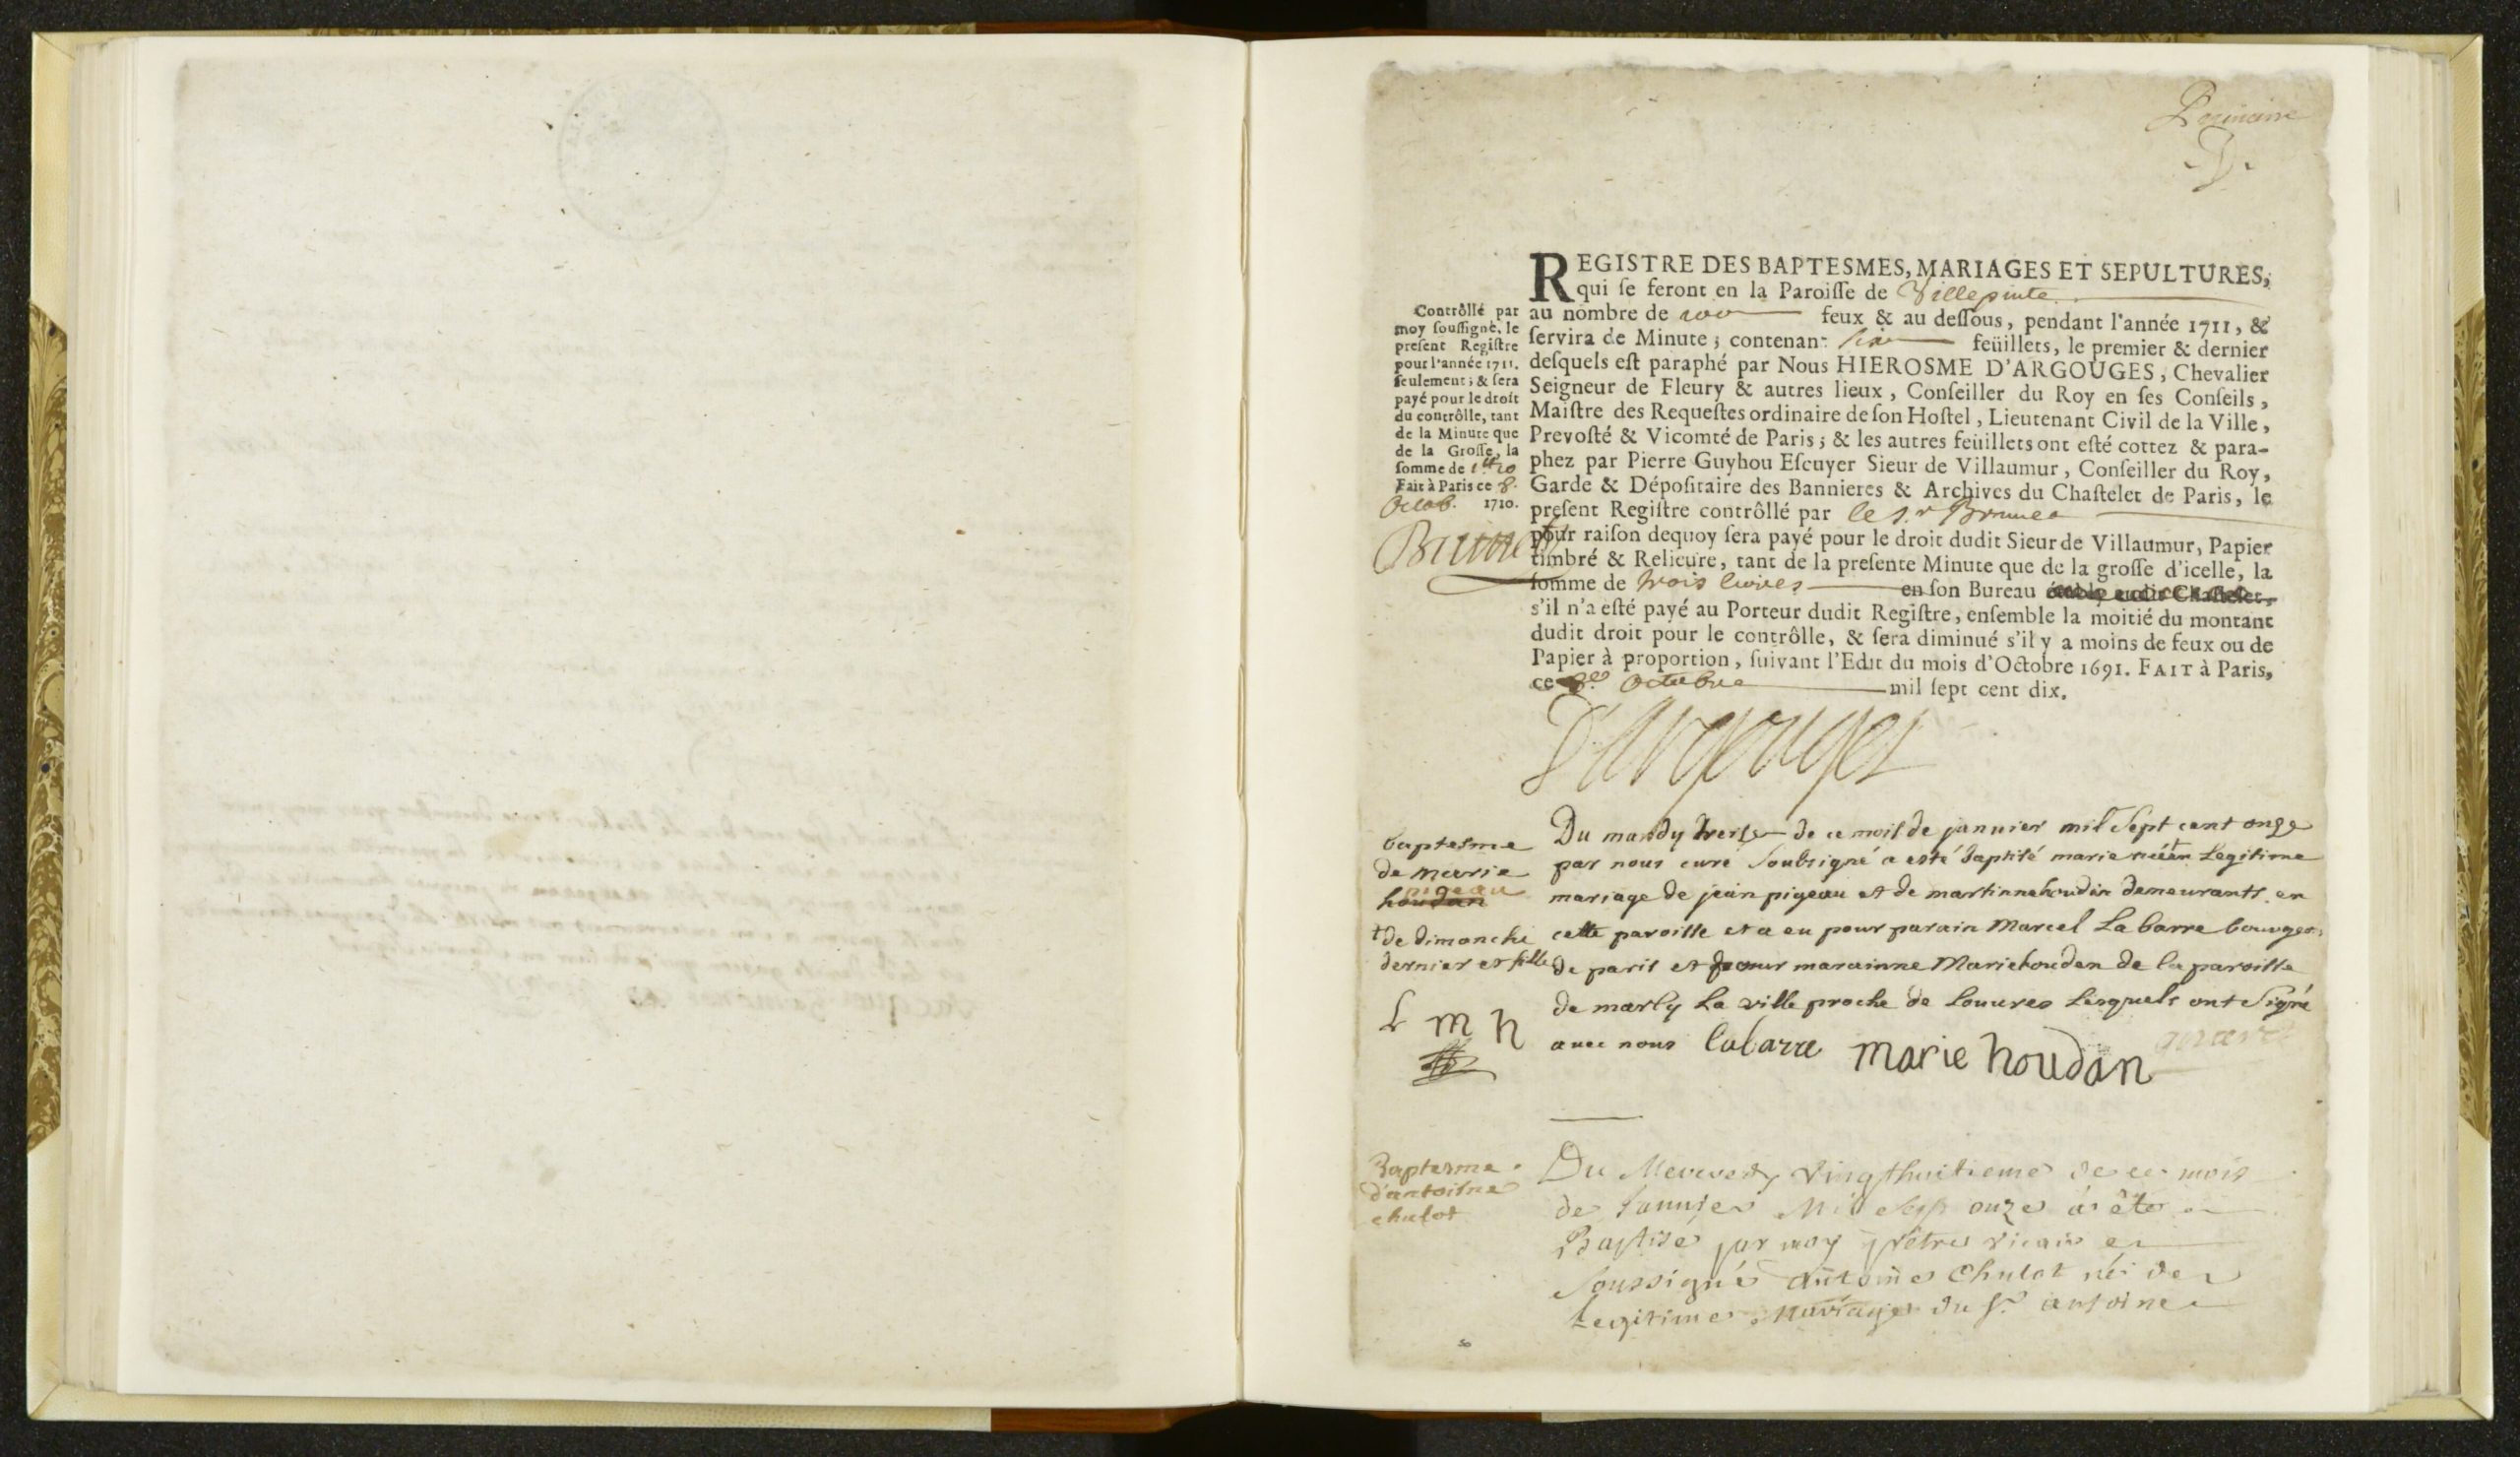 Premiere
REGISTRE DES BAPTESMES, MARIAGES ET SEPULTURES,
qui ſe feront en la Paroiſſe de Villepinte
au nombre de 100 feux & au deſſous, pendant l'année 1711, &
ſervira de Minute; contenant feüillets, le premier & dernier
deſquels eſt paraphé par Nous HIEROSME D'ARGOUGES, Chevalier
Seigneur de Fleury & autres lieux, Conſeiller du Roy en ſes Conſeils,
Maiſtre des Requeſtes ordinaire de ſon Hoſtel, Lieutenant Civil de la Ville,
Prevoſté & Vicomté de Paris; & les autres feüillets ont eſté cottez & para-
phez par Pierre Guyhou Eſcuyer Sieur de Villaumur, Conſeiller du Roy,
Garde & Dépoſitaire des Bannieres & Archives du Chaſtelet de Paris, le
preſent Regiſtre contrôllé par le S.r Brunet
pour raiſon dequoy ſera payé pour le droit dudit Sieur de Villaumur, Papier
timbré & Relieure, tant de la preſente Minute que de la groſſe d'icelle, la
ſomme de trois livres en ſon Bureau étably audit Chaſtelet,
s'il n'a eſté payé au Porteur dudit Regiſtre, enſemble la moitié du montant
dudit droit pour le contrôlle, & ſera diminué s'il y a moins de feux ou de
Papier à proportion, ſuivant l'Edit du mois d'Octobre 1691. FAIT à Paris,
ce 8.e Octobre mil ſept cent dix.
Contrôllé par
moy ſouſſigné, le
preſent Regiſtre
pour l'année 1711.
ſeulement; & ſera
payé pour le droit
du contrôlle, tant
de la Minute que
de la Groſſe, la
ſomme de 1tt 10
Fait à Paris ce 8.
Octob. 1710.
Brunet
D'Argouges
baptesme
de marie
pigeau
houdan
† de dimanche
dernier et fille
L m h
Du mardy treise de ce mois de janvier mil Sept cent onze
par nous curé Soubsigné a esté baptisé marie née† en Legitime
mariage de jean pigeau et de martinne houdan demeurants en
cette paroisse et a eu pour parain Marcel Labarre bourgeois
de paris et pour marainne Marie houdan de la paroisse
de marly La ville proche de Louvres Lesquels ont Signé
avec nous labarre marie houdan
Baptesme
d'antoisne
chulot
Du Mercredy Vingt huitieme de ce mois
de Janvier Mil Sept onze a été
Baptisé par moy prêtre vicaire
Soussigné Antoine Chulot né de
Legitime Mariage du Sr antoine